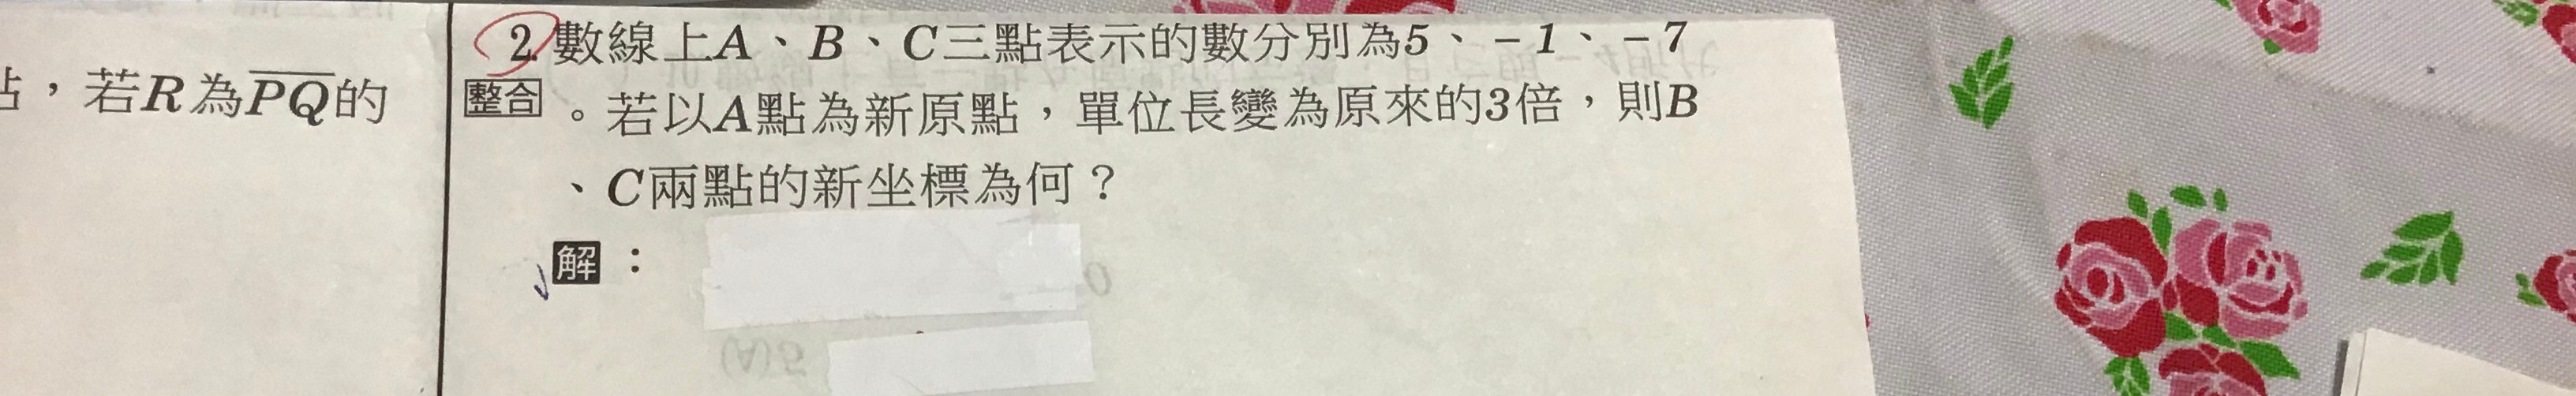 點，若R為PQ的
2. 數線上A、B、C三點表示的數分別為5、－1、－7
整合 。若以A點為新原點，單位長變為原來的3倍，則B
、C兩點的新坐標為何？
解：